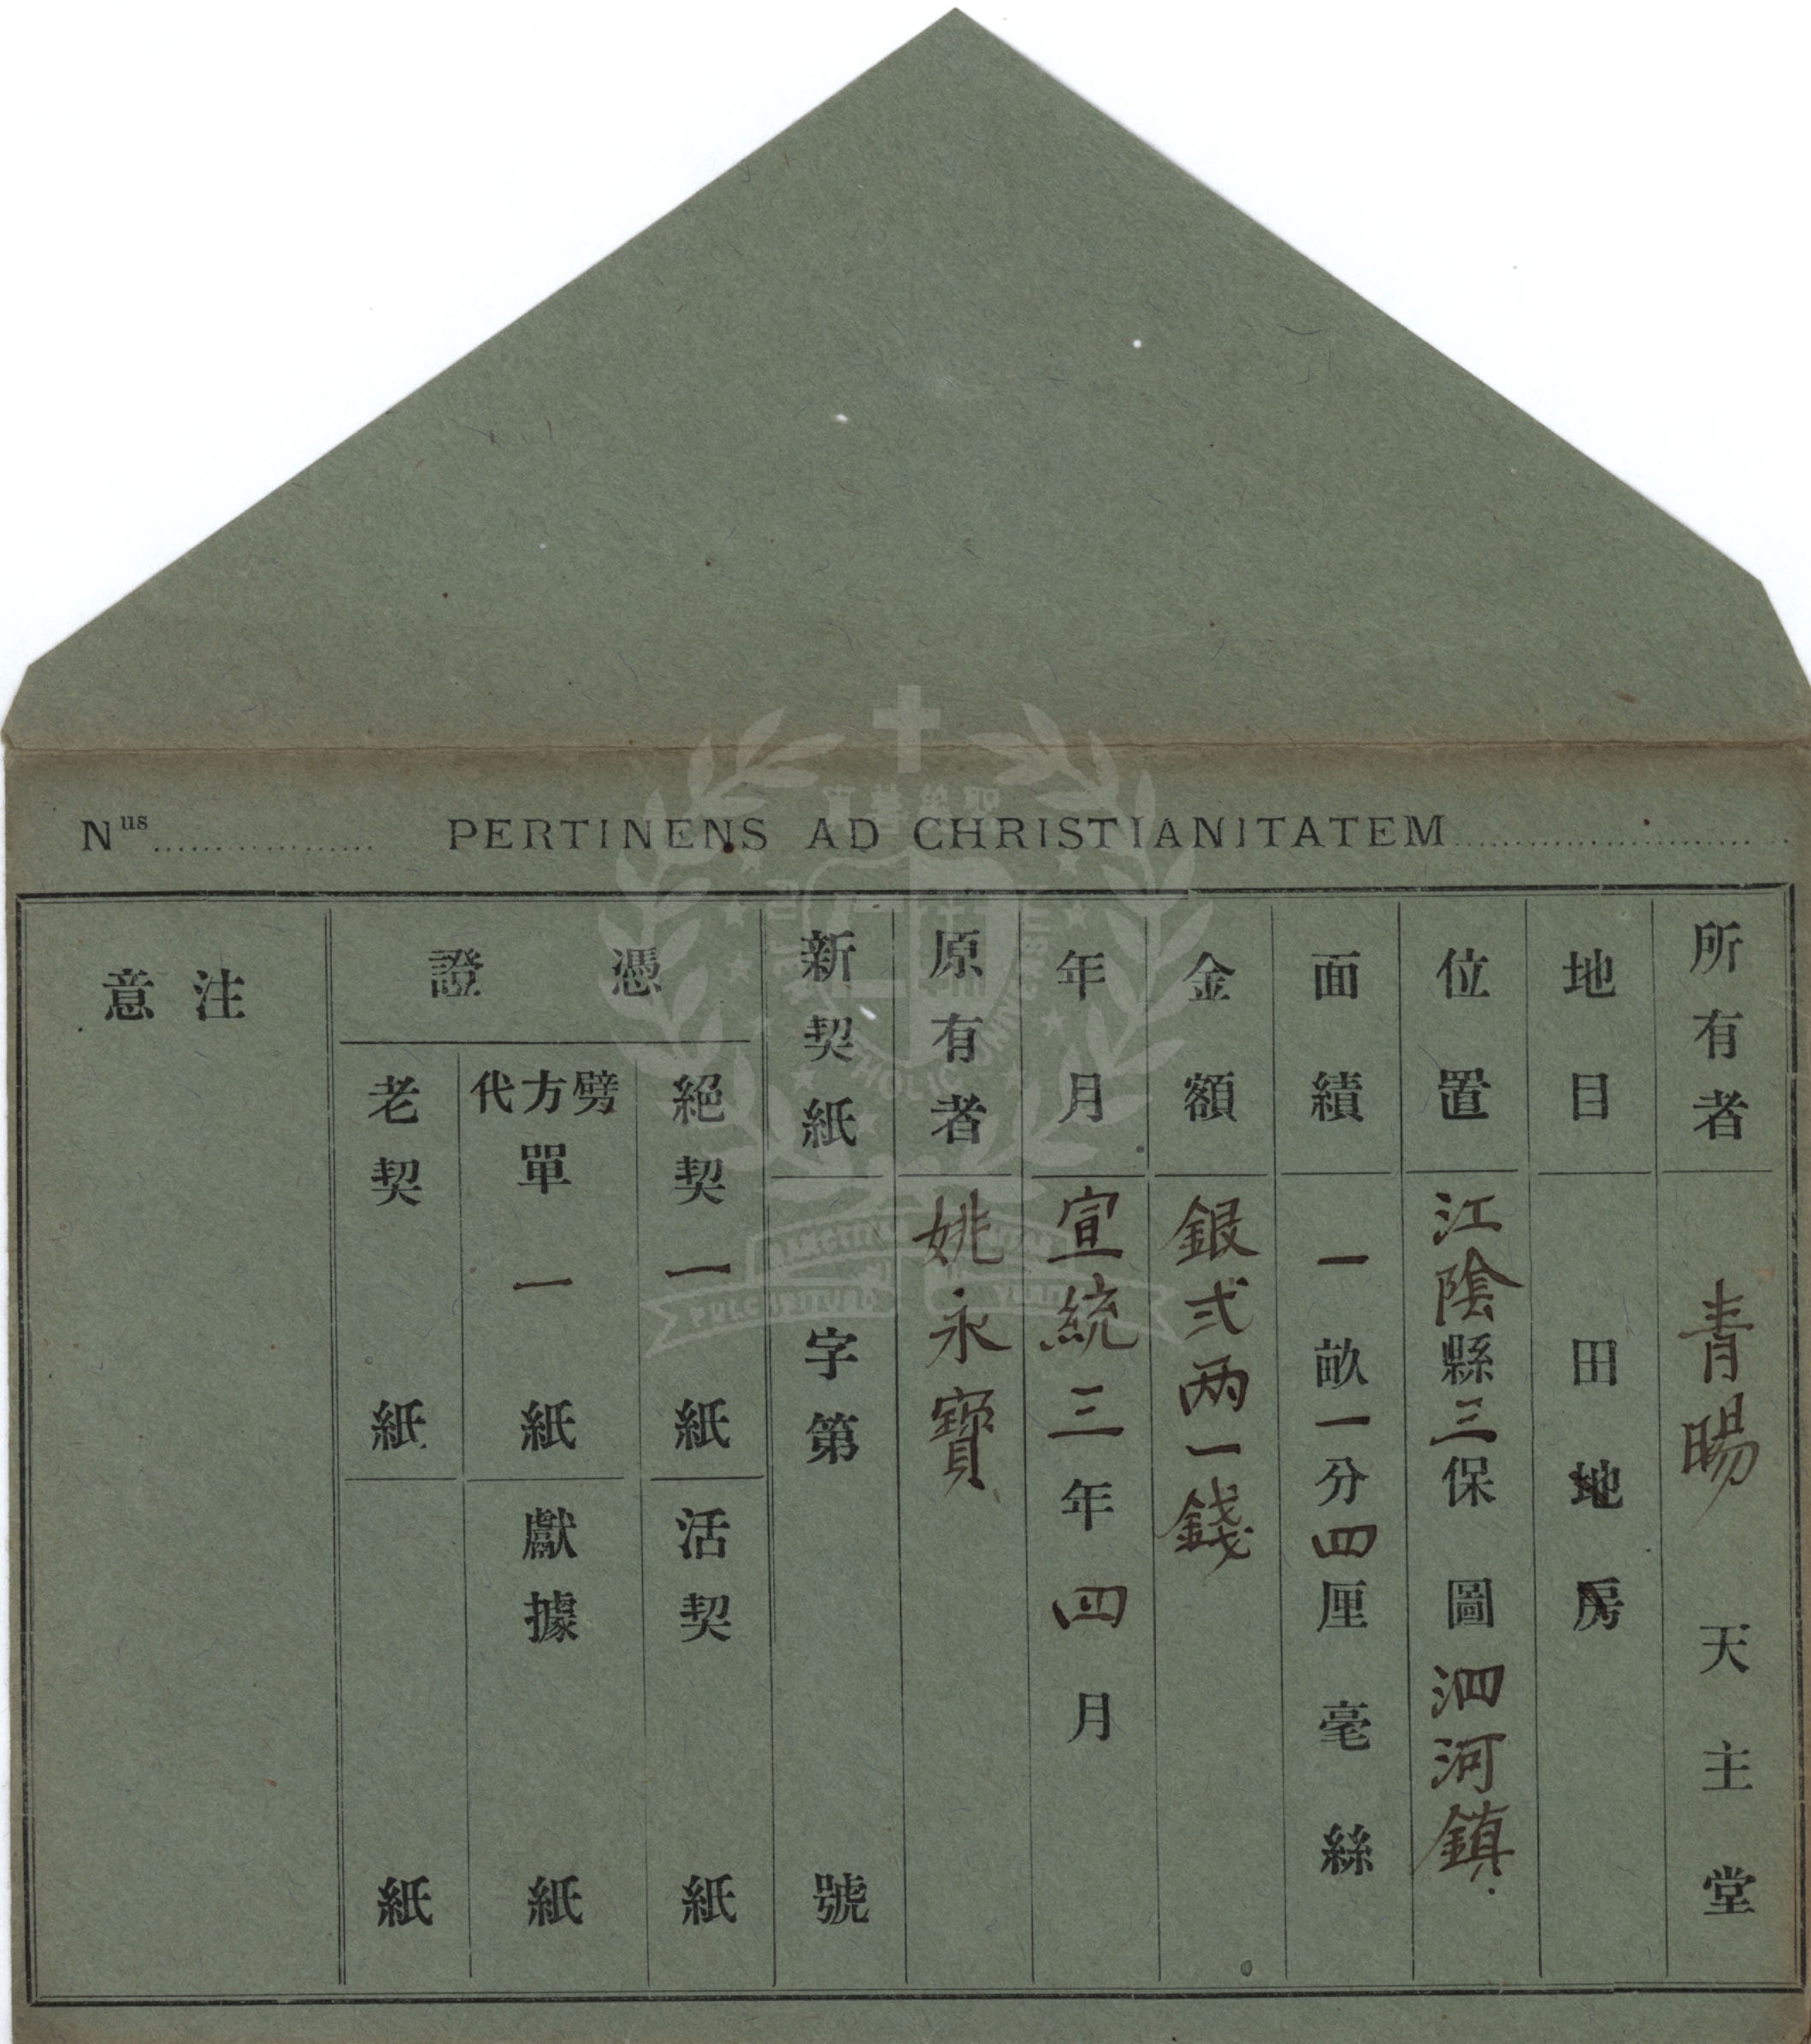 Nus PERTINENS AD CHRISTIANITATEM
所有者 青暘 天主堂
地目 田地房
位置 江陰縣三保 圖泗河鎮
面積 一畝一分四厘 毫 絲
金額 銀弍两一錢
年月 宣統三年四月
原有者 姚永寶
新契紙 字第 號
憑證
絕契 一紙 活契 紙
劈方代單 一紙 獻據 紙
老契 紙 紙
注意